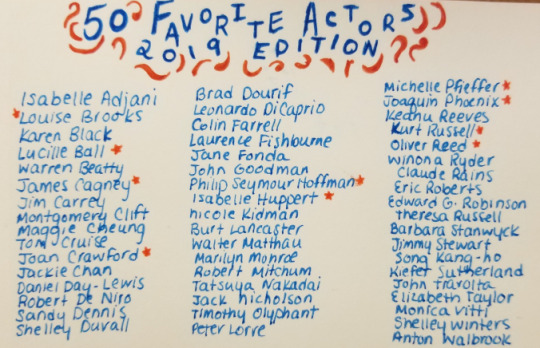 50 FAVORITE ACTORS
2019 EDITION
Isabelle Adjani
Louise Brooks
Karen Black
Lucille Ball
Warren Beatty
James Cagney
Jim Carrey
Montgomery Clift
Maggie Cheung
Tom Cruise
Joan Crawford
Jackie Chan
Daniel Day-Lewis
Robert De Niro
Sandy Dennis
Shelley Duvall
Brad Dourif
Leonardo DiCaprio
Colin Farrell
Laurence Fishburne
Jane Fonda
John Goodman
Philip Seymour Hoffman
Isabelle Huppert
Nicole Kidman
Burt Lancaster
Walter Matthau
Marilyn Monroe
Robert Mitchum
Tatsuya Nakadai
Jack Nicholson
Timothy Olyphant
Peter Lorre
Michelle Pfieffer
Joaquin Phoenix
Keanu Reeves
Kurt Russell
Oliver Reed
Winona Ryder
Claude Rains
Eric Roberts
Edward G. Robinson
Theresa Russell
Barbara Stanwyck
Jimmy Stewart
Song Kang-ho
Kiefer Sutherland
John Travolta
Elizabeth Taylor
Monica Vitti
Shelley Winters
Anton Walbrook